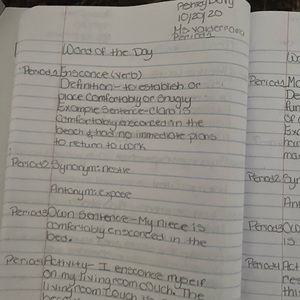 10/20/20
Period 1
Word of the Day
Period 1 Ensconce (verb)
Definition - to establish or
place comfortably or snugly
Example Sentence - Clara is
comfortably ensconced in the
beach & had no immediate plans
to return to work
Period 2 Synonym: nestle
Antonym: expose
Period 3 Own Sentence - My niece is
comfortably ensconced in the
bed.
Period 4 Activity - I ensconce myself
on my living room couch. The
living room couch is
Period 1
Period 2
Period 3
Period 4